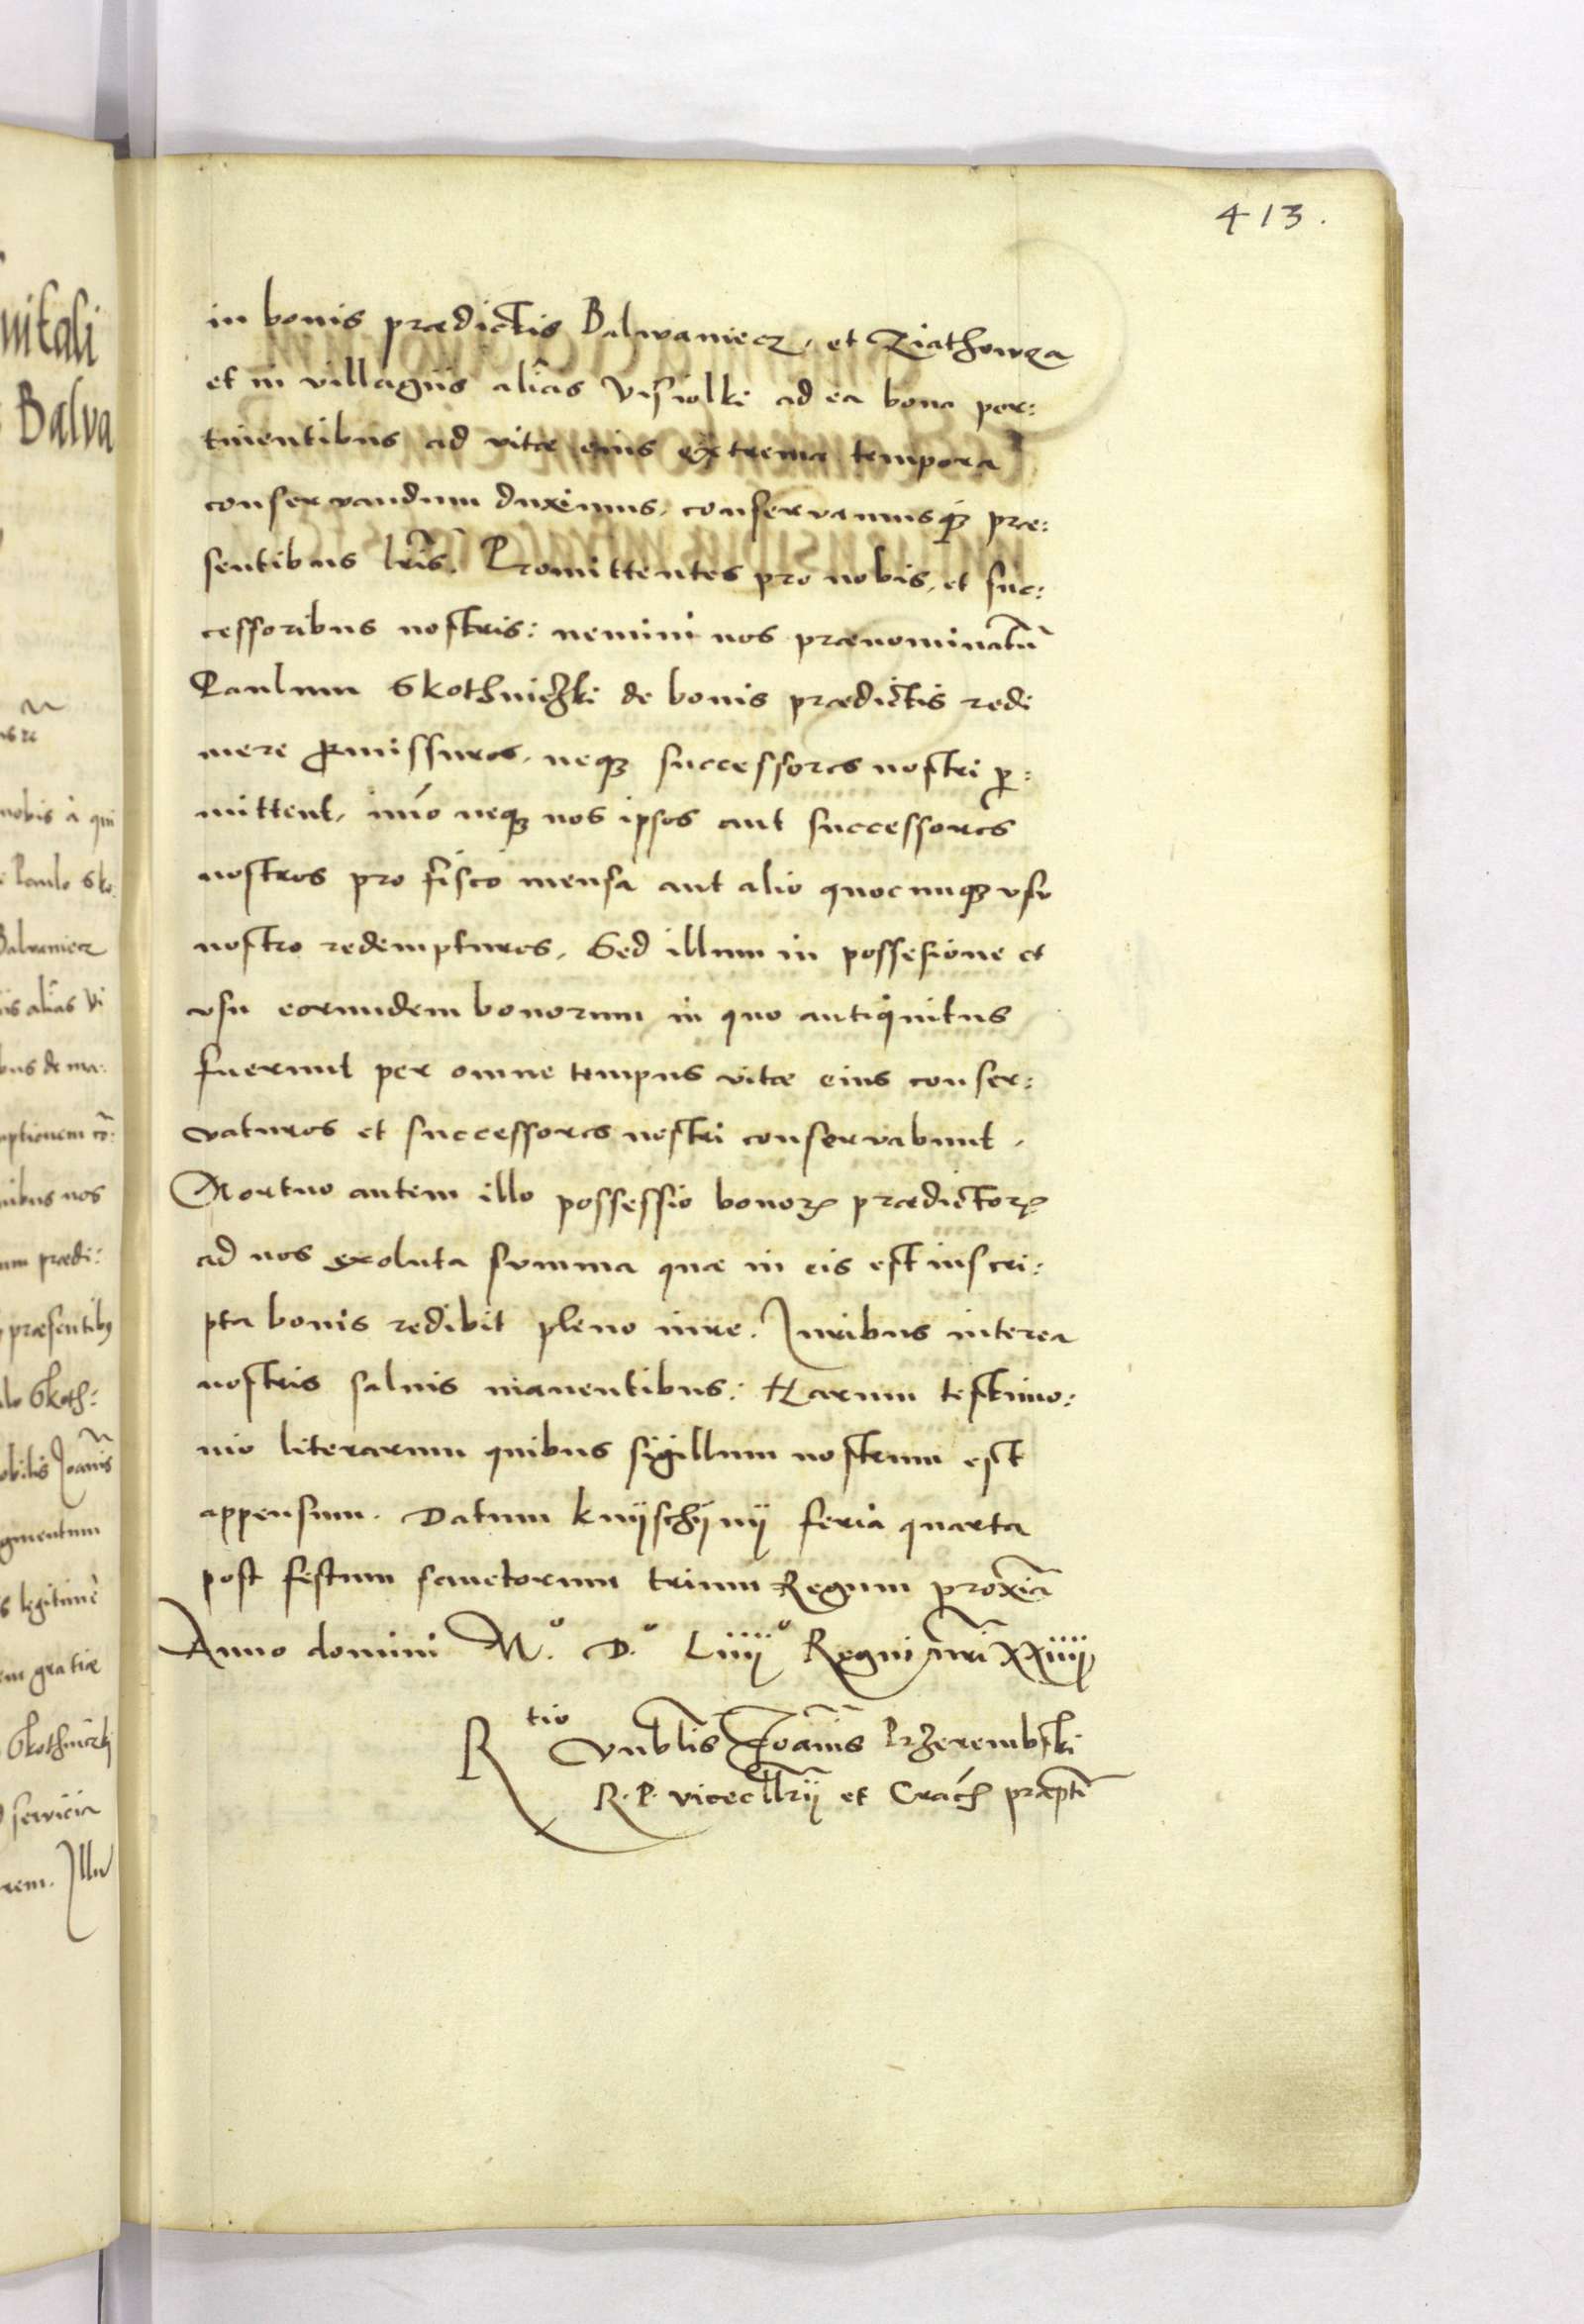 413.
in bonis prædictis Balwaniecz, et Ziathowza
et in villagiis aliàs Visiolki ad ea bona per:
tinentibus ad vitæ eius extrema tempora
conservandum duximus, conservamusqȝ præ:
sentibus lr̃is. Promittentes pro nobis, et suc:
cessoribus nostris: nemini nos prænominatũ
Paulum Skothniczki de bonis prædictis redi
mere ꝑmissuros, neqȝ successores nostri ꝑ:
mittent, imò neqȝ nos ipsos aut successores
nostros pro fisco mensa aut alio quocunqȝ usu
nostro redempturos, Sed illum in possesione et
vsu eorundem bonorum in quo antiquitus
fuerunt per omne tempus vitæ eius conser:
vaturos et successores nostri conservabunt,
Mortuo autem illo possessio bonoꝝ prædictoꝝ
ad nos exoluta summa quæ in eis est inscri:
pta bonis redibit pleno iure. Iuribus interea
nostris salvis manentibus: Harum testimo:
nio literarum quibus sigillum nostrum est
appensum. Datum knÿschÿnÿ feria quarta
post festum sanctorum trium Regum proxĩa
Anno domini Mº. D.º Liiijº Regni nr̃i XXiiij
Rtio Vnblis Ioañis Przerembski
R. P. vicecllrij et Crac̃ præptĩ
nitali
Balva
nobis à qui
Paulo Sko:
Balvaniecz
is aliàs Vi
bus de ma:
mptionem cõ:
nibus nos
um prædi:
præsentibꝰ
lo Skoth:
obilis Ioañis
gmentum
s legitimè
em gratiæ
Skothniczkj
servicia
rem. Illũ